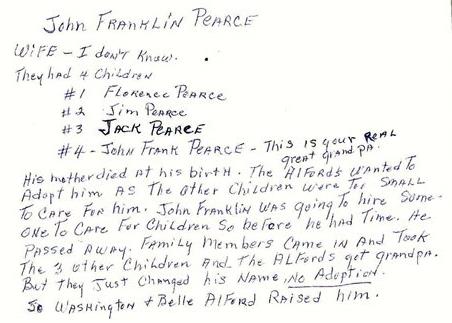 John Franklin Pearce
Wife - I don't know.
They had 4 Children
#1 Florence Pearce
#2 Jim Pearce
#3 Jack Pearce
#4 - John Frank Pearce - This is your REAL
great grandpa.
His mother died at his birth. The Alfords wanted To
Adopt him AS The other Children were Too SMALL
To Care For him. John Franklin was going to hire Some-
one To Care For Children So before he had Time. He
PASSED AWAY. Family Members CAME IN And Took
The 3 other Children And The Alfords got grandpa.
But they Just Changed his Name, No Adoption.
So Washington & Belle Alford Raised him.